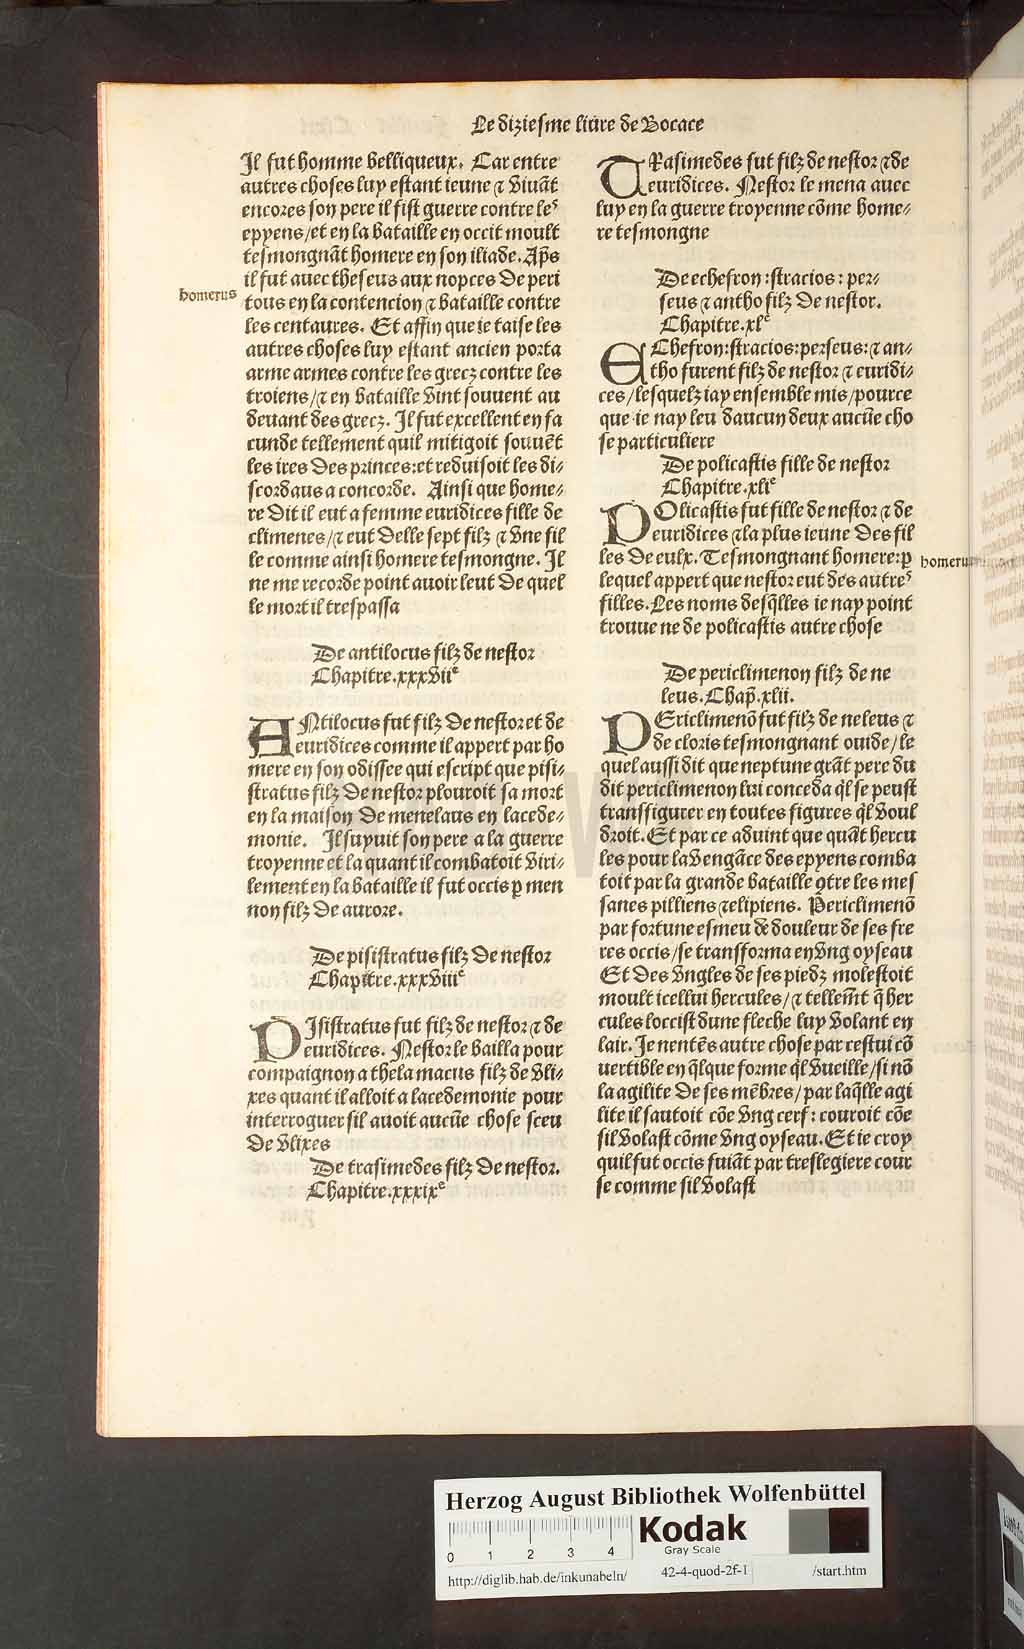 Le diziesme liure de Bocace
Il fut homme belliqueux. Car entre
autres choses luy estant ieune ⁊ viuāt
encores son pere il fist guerre contre leˢ
epyens/et en la bataille en occit moult
tesmongnāt homere en son iliade. Ap̄s
il fut auec theseus aux nopces de peri
homerus
tous en la contencion ⁊ bataille contre
les centaures. Et affin que ie taise les
autres choses luy estant ancien porta
arme armes contre les grecz contre les
troiens/⁊ en bataille vint souuent au
deuant des grecz. Il fut excellent en fa
cunde tellement quil mitigoit souuēt
les ires des princes:et reduisoit les di⸗
scordans a concorde. Ainsi que home⸗
re dit il eut a femme euridices fille de
climenes/⁊ eut delle sept filz ⁊ vne fil
le comme ainsi homere tesmongne. Il
ne me recorde point auoir leut de quel
le mort il trespassa
De antilocus filz de nestor
Chapitre.xxxviiᵉ
ANtilocus fut filz de nestor et de
euridices comme il appert par ho
mere en son odissee qui escript que pisi⸗
stratus filz de nestor plouroit sa mort
en la maison de menelaus en lacede⸗
monie. Il suyuit son pere a la guerre
troyenne et la quant il combatoit viri⸗
lement en la bataille il fut occis ꝑ men
non filz de aurore.
De pisistratus filz de nestor
Chapitre.xxxviiiᵉ
PIsistratus fut filz de nestor ⁊ de
euridices. Nestor le bailla pour
compaignon a thelamacus filz de vli⸗
xes quant il alloit a lacedemonie pour
interroguer sil auoit aucūe chose sceu
de vlixes
De trasimedes filz de nestor.
Chapitre.xxxixᵉ
TRasimedes fut filz de nestor ⁊ de
euridices. Nestor le mena auec
luy en la guerre troyenne cōme home⸗
re tesmongne
De echefron:stracios:per⸗
seus ⁊ antho filz de nestor.
Chapitre.xlᵉ
EChefron:stracios:perseus:⁊ an⸗
tho furent filz de nestor ⁊ euridi⸗
ces/lesquelz iay ensemble mis/pource
que ie nay leu daucun deux aucūe cho
se particuliere
De policastis fille de nestor
Chapitre.xliᵉ
POlicastis fut fille de nestor ⁊ de
euridices ⁊ la plus ieune des fil
les de eulx. Tesmongnant homere:ꝑ
homerus
lequel appert que nestor eut des autreˢ
filles. Les noms desq̄lles ie nay point
trouue ne de policastis autre chose
De periclimenon filz de ne
leus. Chap̄.xlii.
PEriclimenō fut filz de neleus ⁊
de cloris tesmongnant ouide/le
quel aussi dit que neptune grāt pere du
dit periclimenon lui conceda q̄l se peust
transfigurer en toutes figures q̄l voul
droit. Et par ce aduint que quāt hercu
les pour la vengāce des epyens comba
toit par la grande bataille ꝯtre les mes
sanes pilliens ⁊ elipiens. Periclimenō
par fortune esmeu de douleur de ses fre
res occis/se transforma en vng oyseau
Et des vngles de ses piedz molestoit
moult icellui hercules/⁊ tellem̄t q̄ her
cules loccist dune fleche luy volant en
lair. Ie nentēs autre chose par cestui cō
uertible en q̄lque forme q̄l vueille/si nō
la agilite de ses mēbres/par laq̄lle agi
lite il sautoit cōe vng cerf: couroit cōe
sil volast cōme vng oyseau. Et ie croy
quil fut occis fuiāt par treslegiere cour
se comme sil volast
Herzog August Bibliothek Wolfenbüttel
0 1 2 3 4
Kodak
Gray Scale
http://diglib.hab.de/inkunabeln/ 42-4-quod-2f-1 /start.htm